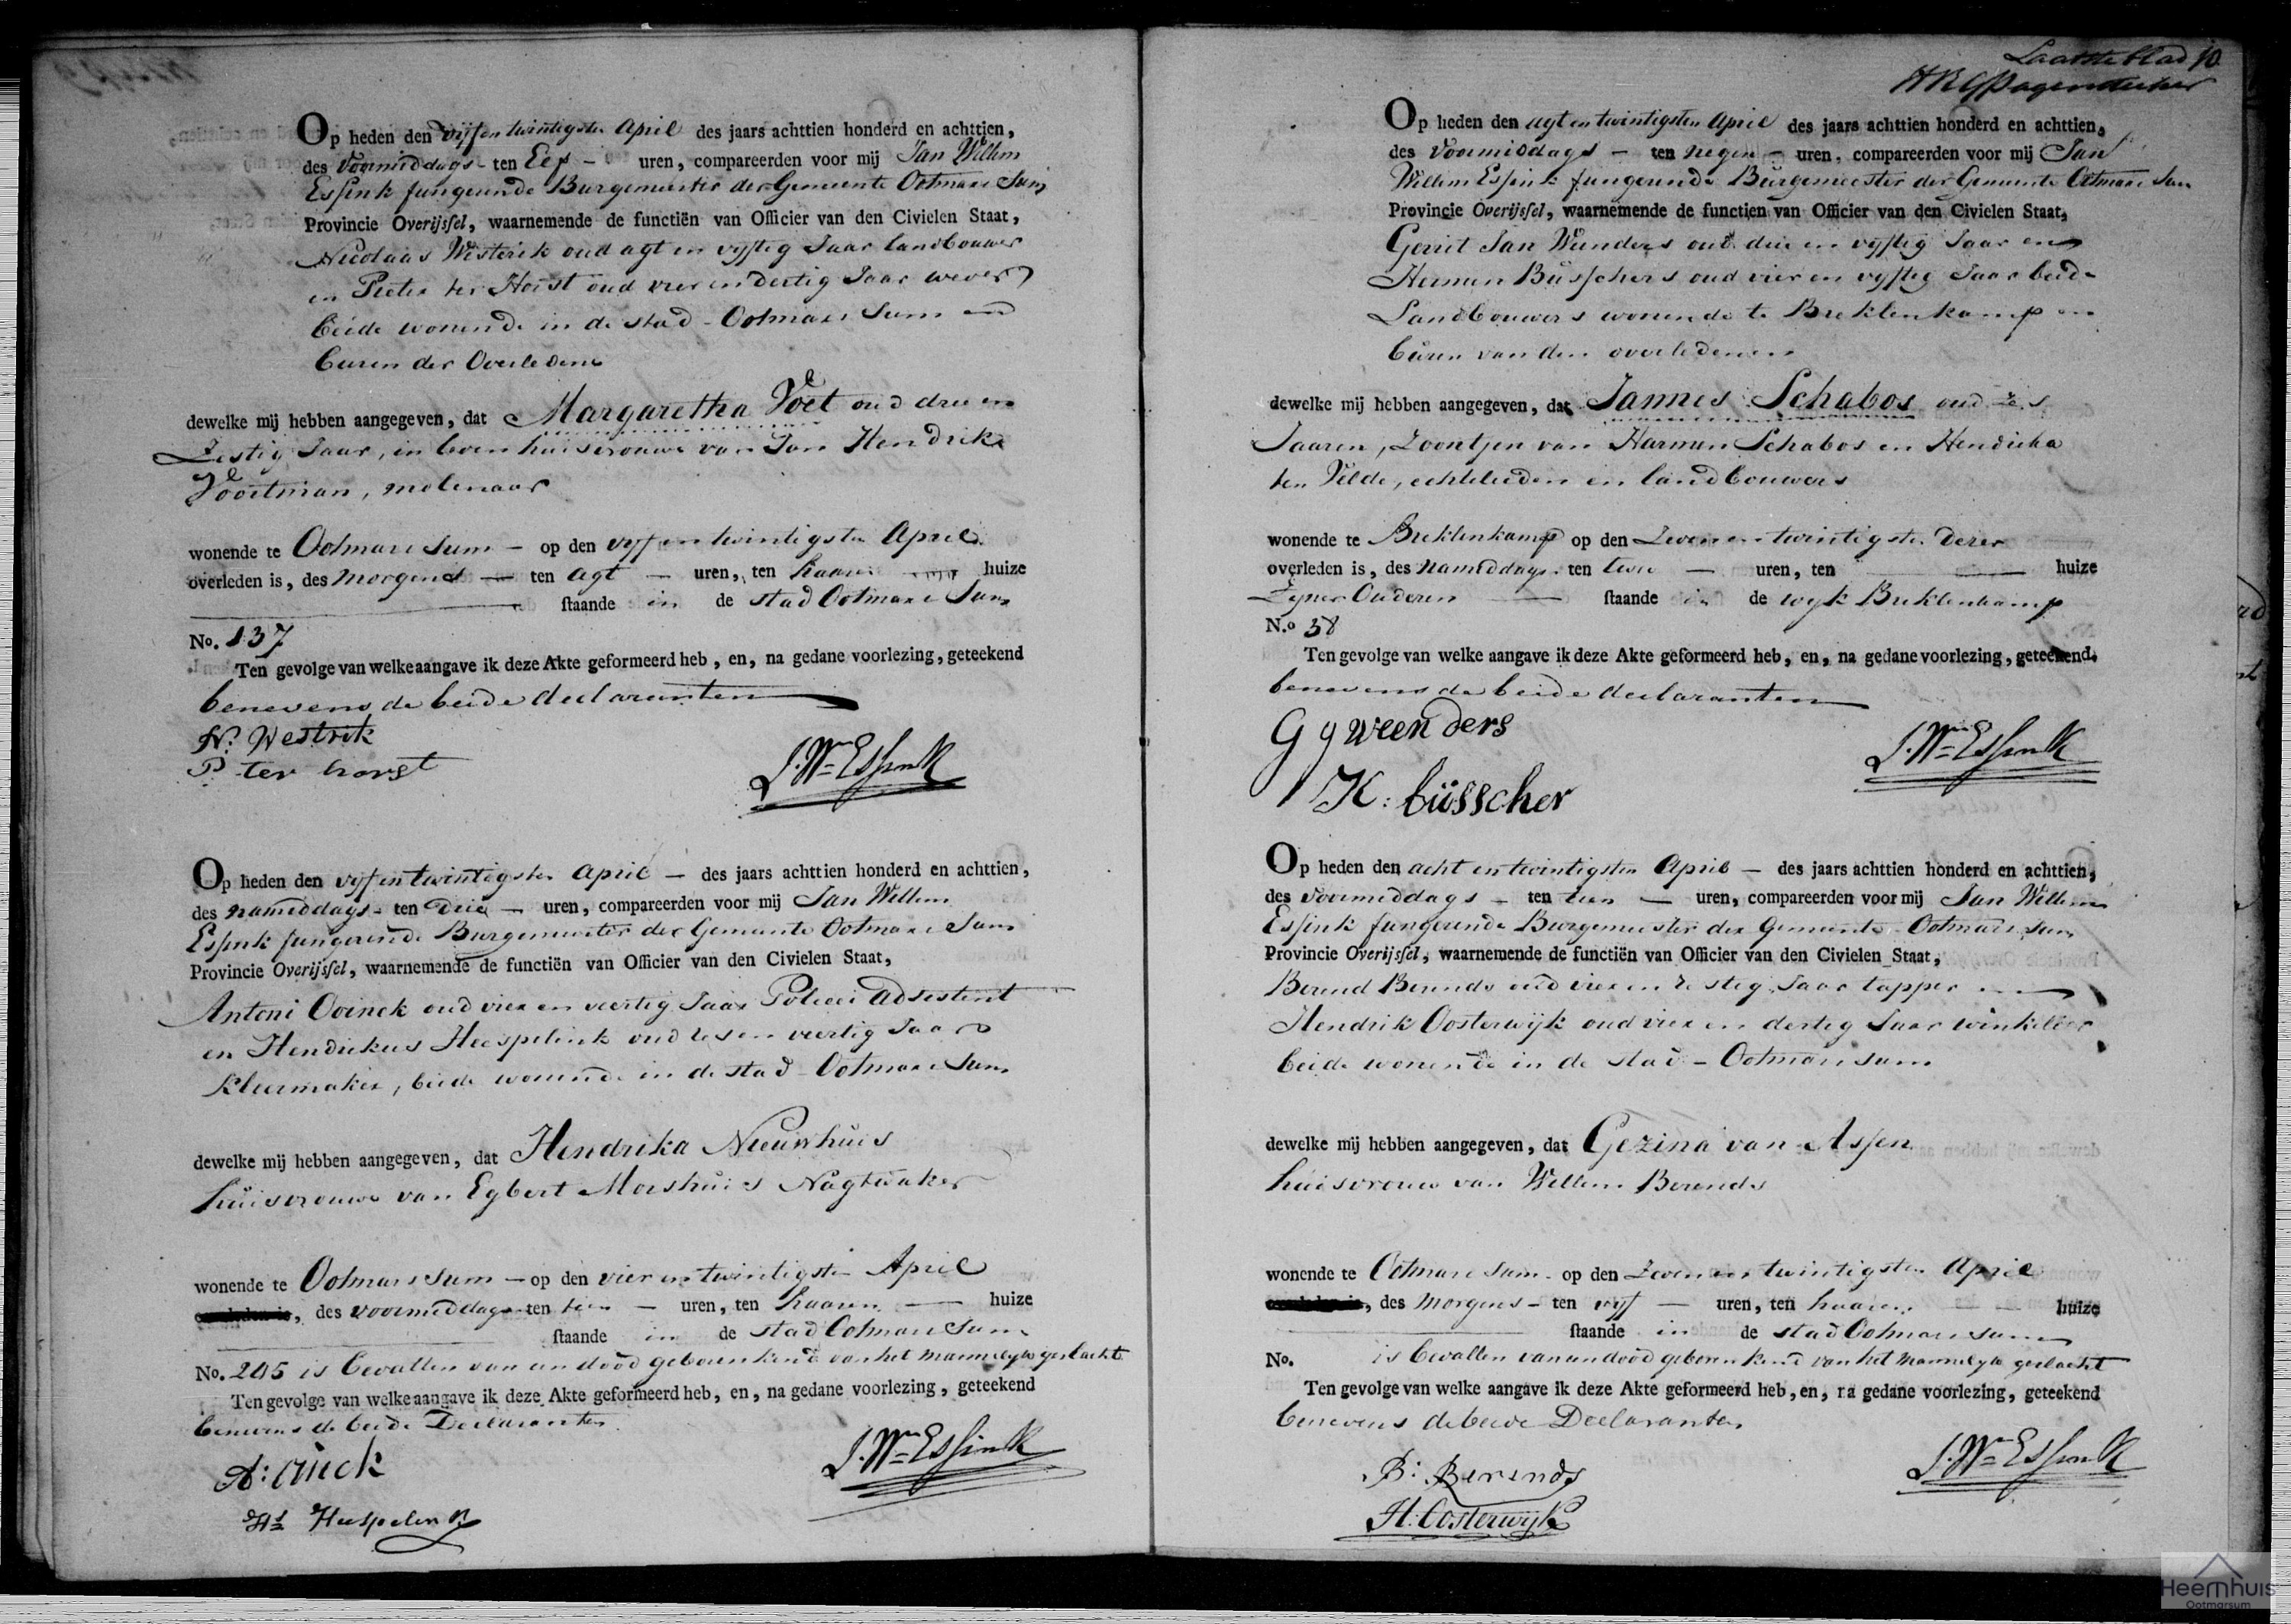 Op heden den vijf en twintigsten April des jaars achttien honderd en achttien,
des voormiddags - ten Elf - uren, compareerden voor mij Jan Willem
Essink fungerende Burgemeester der Gemeente Ootmarssum
Provincie Overijssel, waarnemende de functiën van Officier van den Civielen Staat,
Nicolaas Westerik oud agt en vyftig Jaar landbouwer
en Pieter ter Horst oud vier en dertig Jaar wever
beide wonende in de stad Ootmarssum en
buren der Overledene
dewelke mij hebben aangegeven, dat Margaretha Voet oud drie en
Zestig Jaar, in leven huisvrouwe van Jan Hendrik
Voortman, molenaar
wonende te Ootmarssum - op den vyf en twintigsten April
overleden is, des morgens - ten agt - uren, ten haaren huize
staande in de stad Ootmarssum
No. 137
Ten gevolge van welke aangave ik deze Akte geformeerd heb, en, na gedane voorlezing, geteekend
benevens de beide declaranten
N. Westrik
P. ter horst
J. Wm Essink
Op heden den vyf en twintigsten April - des jaars achttien honderd en achttien,
des namiddags - ten drie - uren, compareerden voor mij Jan Willem
Essink fungerende Burgemeester der Gemeente Ootmarssum
Provincie Overijssel, waarnemende de functiën van Officier van den Civielen Staat,
Antoni Ooinck oud vier en veertig Jaar Policei Adsistent
en Hendrikus Heespelink oud zes en veertig Jaar
kleermaker, beide wonende in de stad Ootmarssum
dewelke mij hebben aangegeven, dat Hendrika Nieuwhuis
huisvrouwe van Egbert Morshuis Nagtwaker
wonende te Ootmarssum - op den vier en twintigsten April
des voormiddags ten tien - uren, ten haaren - huize
staande in de stad Ootmarssum
No. 205 is bevallen van een dood geboren kind van het mannelyk geslacht
Ten gevolge van welke aangave ik deze Akte geformeerd heb, en, na gedane voorlezing, geteekend
benevens de beide Declaranten
H. Heespelink
J. Wm Essink
Laatste blad 10
Op heden den agt en twintigsten April des jaars achttien honderd en achttien,
des voormiddags - ten negen - uren, compareerden voor mij Jan
Willem Essink fungerende Burgemeester der Gemeente Ootmarssum
Provincie Overijssel, waarnemende de functien van Officier van den Civielen Staat,
Gerrit Jan Weenders oud drie en vyftig Jaar en
Herman Büsschers oud vier en vyftig Jaar beide
Landbouwers wonende te Breklenkamp en
buren van den overledenen
dewelke mij hebben aangegeven, dat Jannes Schabos oud zes
Jaaren, Zoontjen van Harmen Schabos en Hendrika
ten Velde, echtelieden en landbouwers
wonende te Breklenkamp op den Zeven en twintigsten dezer
overleden is, des namiddags ten twee - uren, ten huize
Zyner Ouderen staande in de wyk Breklenkamp
N.o 38
Ten gevolge van welke aangave ik deze Akte geformeerd heb, en, na gedane voorlezing, geteekend
benevens de beide declaranten
G g weenders
K: büsscher
J. Wm Essink
Op heden den acht en twintigsten April - des jaars achttien honderd en achttien,
des voormiddags - ten tien - uren, compareerden voor mij Jan Willem
Essink fungerende Burgemeester der Gemeente Ootmarssum
Provincie Overijssel, waarnemende de functiën van Officier van den Civielen Staat,
Berend Berends oud vier en zestig Jaar tapper en
Hendrik Oosterwijk oud vier en dertig Jaar winkelier
beide wonende in de stad - Ootmarssum
dewelke mij hebben aangegeven, dat Gezina van Assen
huisvrouw van Willem Berends
wonende te Ootmarssum - op den Zeven en twintigsten April
des morgens - ten vyf - uren, ten haaren huize
staande in de stad Ootmarssum
No. is bevallen van een dood geboren kind van het mannelyk geslacht
Ten gevolge van welke aangave ik deze Akte geformeerd heb, en, na gedane voorlezing, geteekend
benevens de beide Declaranten
B: Berends
H: Oosterwijk
J. Wm Essink
Heemhuis
Ootmarsum